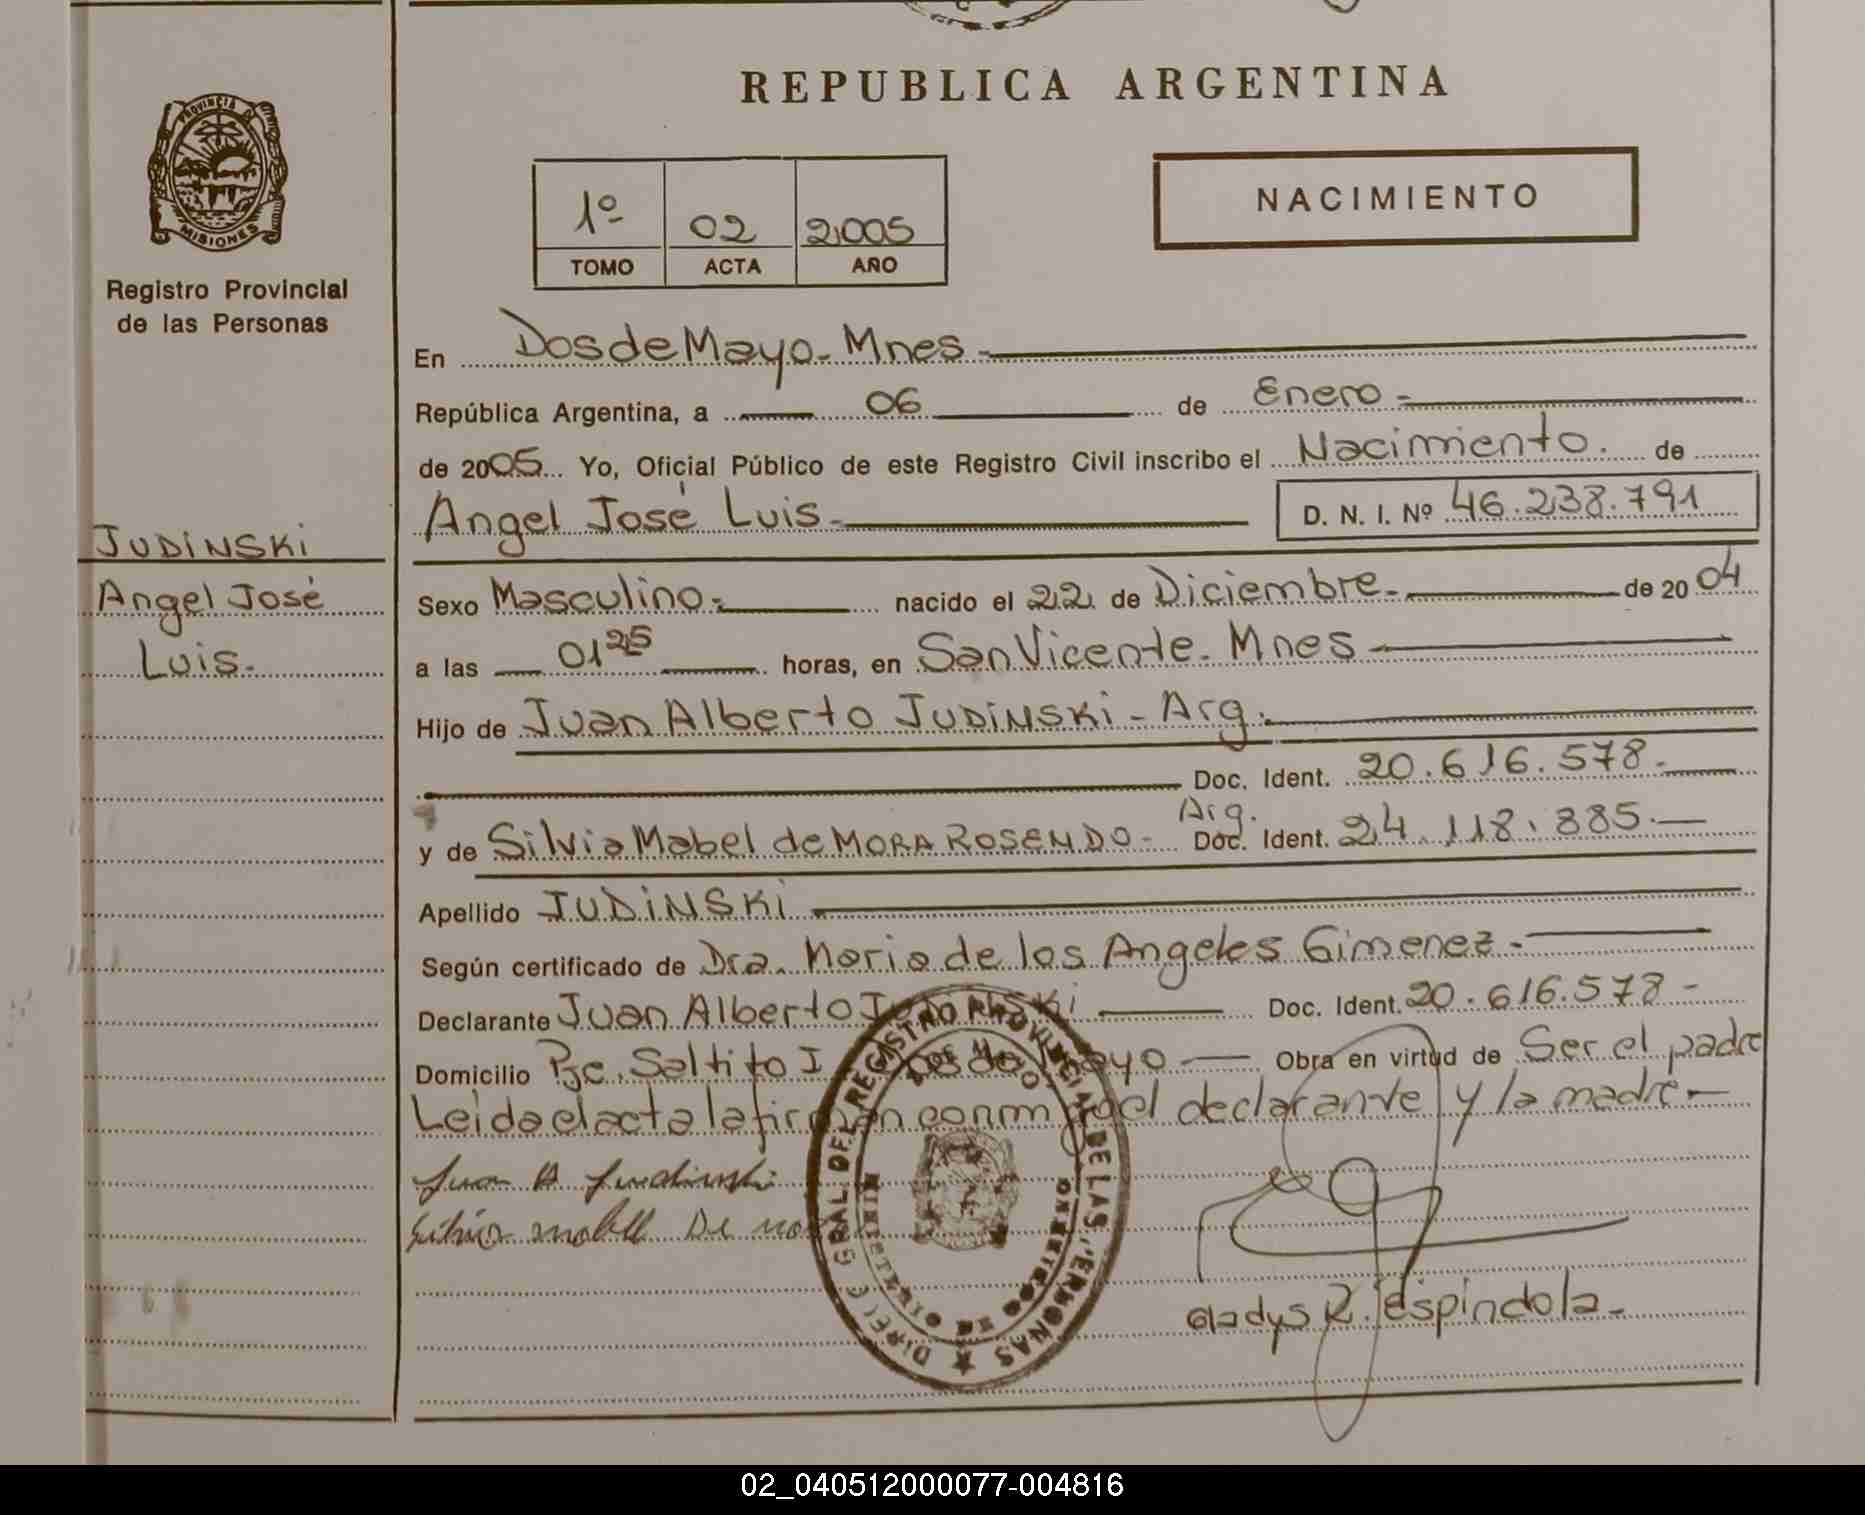 REPUBLICA ARGENTINA
PROVINCIA DE
MISIONES
Registro Provincial
de las Personas
1º 02 2005
TOMO ACTA AÑO
NACIMIENTO
En Dos de Mayo - Mnes -
República Argentina, a 06 de Enero -
de 2005 Yo, Oficial Público de este Registro Civil inscribo el Nacimiento. de
Angel José Luis - D. N. I. Nº 46.238.791
JUDINSKi
Angel José
Luis.
Sexo Masculino - nacido el 22 de Diciembre - de 2004
a las 01 25 horas, en San Vicente - Mnes
Hijo de Juan Alberto JUDINSKi - Arg.
Doc. Ident. 20.616.578 -
Arg.
y de Silvia Mabel de MORA ROSENDO - Doc. Ident. 24.118.885 -
Apellido JUDINSKi
Según certificado de Dra. Maria de los Angeles Gimenez -
Declarante Juan Alberto JUDINSKi Doc. Ident. 20.616.578 -
Domicilio Pje. Saltito I Dos de Mayo - Obra en virtud de Ser el padre
Leida el acta la firman conmigo el declarante y la madre -
Juan A Judinski
Silvia mabell De mora
DIREC. GRAL. DEL REGISTRO PROVINCIAL DE LAS PERSONAS
DOS DE MAYO
Gladys R. Espindola -
02_040512000077-004816